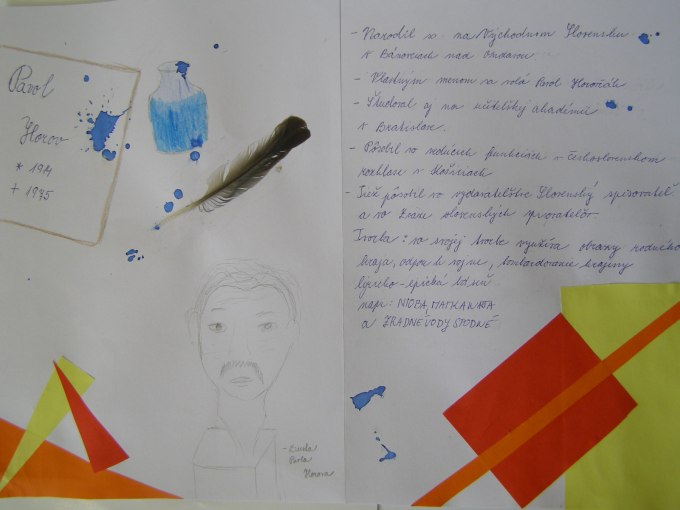 Pavol
Horov
* 1914
+ 1975
- Busta
Pavla
Horova
- Narodil sa na Východnom Slovensku
v Bánovciach nad Ondavou
- Vlastným menom sa volá Pavol Horovčák
- Študoval aj na učiteľskej akadémii
v Bratislave.
- Pôsobil vo vedúcich funkciách v Československom
rozhlase v Košiciach
- Tiež pôsobil vo vydavateľstve Slovenský spisovateľ
a vo Zväze slovenských spisovateľov.
Tvorba: vo svojej tvorbe využíva obrazy rodného
kraja, odpor k vojne, bombardovanie krajiny
lyricko-epická báseň
napr: NIOBA, MATKA NAŠA
a ZRADNÉ VODY SPODNÉ